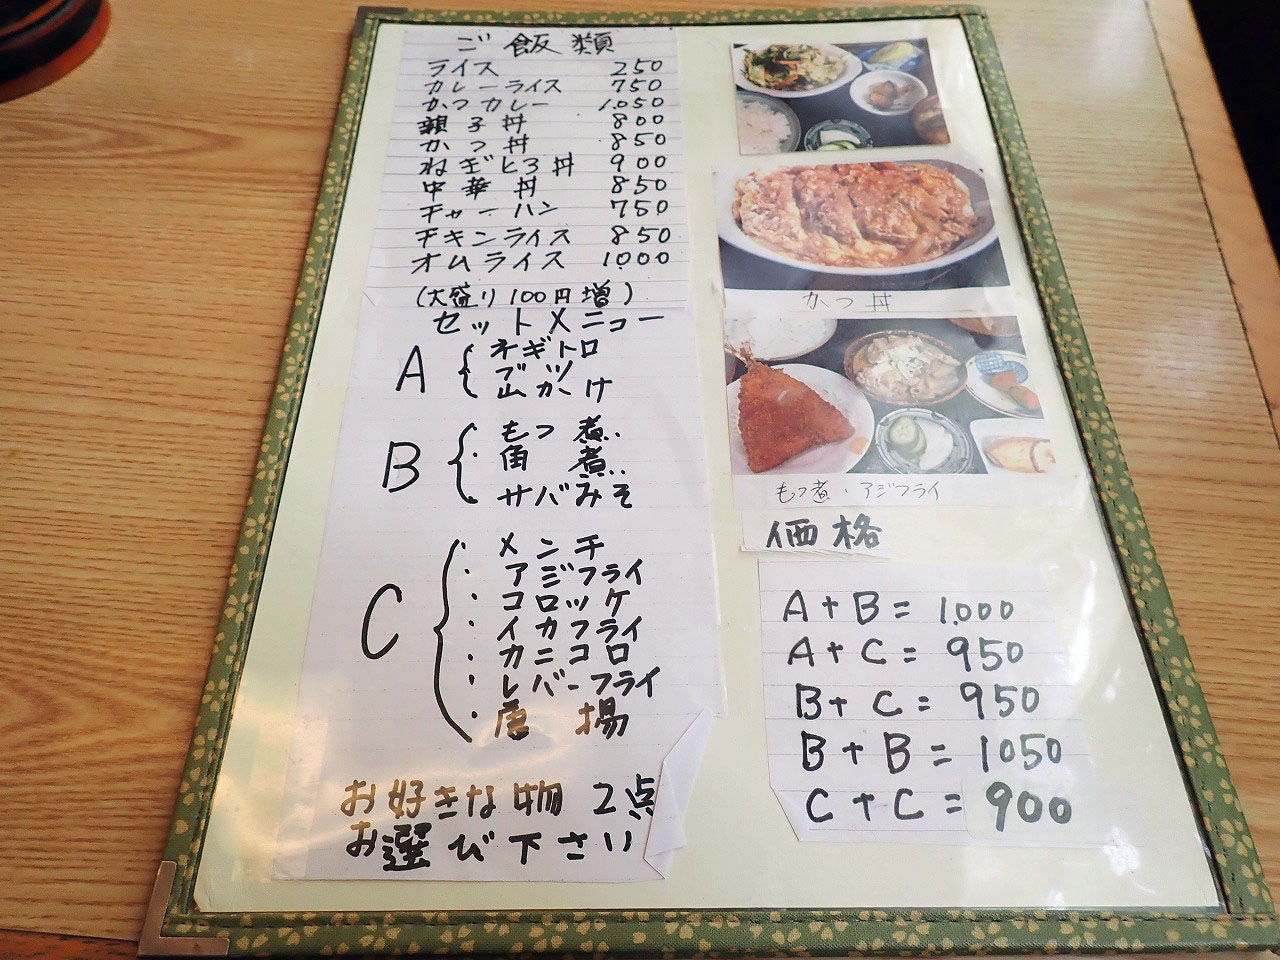 ご飯類
ライス 250
カレーライス 750
かつカレー 1.050
親子丼 800
かつ丼 850
ねぎとろ丼 900
中華丼 850
チャーハン 750
チキンライス 850
オムライス 1000
(大盛り100円増)
セットメニュー
A
ネギトロ
ブツ
山かけ
B
・もつ煮
・角煮
・サバみそ
C
・メンチ
・アジフライ
・コロッケ
・イカフライ
・カニコロ
・レバーフライ
・唐揚
お好きな物2点
お選び下さい
かつ丼
もつ煮・アジフライ
価格
A+B=1.000
A+C=950
B+C=950
B+B=1050
C+C=900